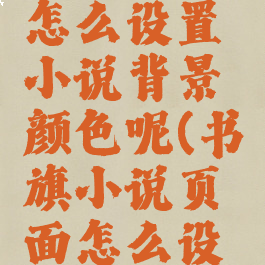 怎么设置
小说背景
颜色呢(书
旗小说页
面怎么设